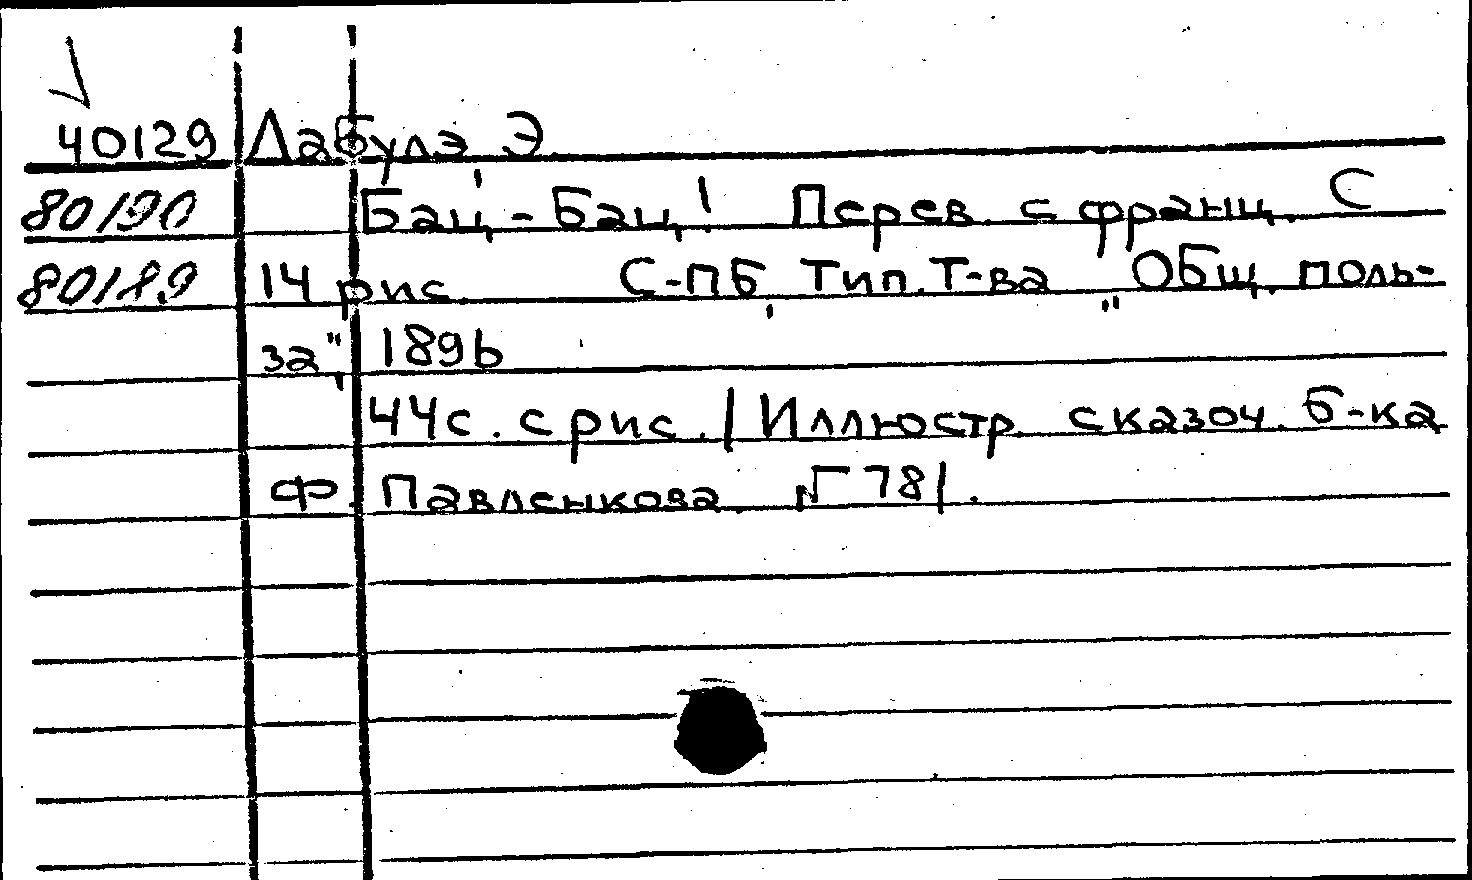 40129 Лабулэ, Э.
80190 Бац-Бац! Перев. с франц. С
80189 14 рис. С-ПБ, Тип. Т-ва „Общ. поль-
за", 1896
44с. с рис. /Иллюстр. сказоч. б-ка
Ф. Павленкова. № 78/.